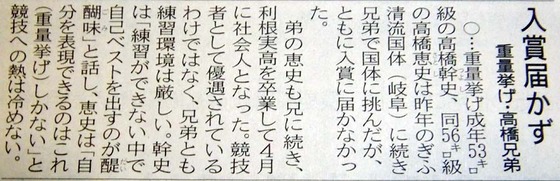 入賞届かず
重量挙げ・高橋兄弟
○…重量挙げ成年53㌔
級の高橋幹史、同56㌔級
の高橋恵史は昨年のぎふ
清流国体（岐阜）に続き
兄弟で国体に挑んだが、
ともに入賞に届かなかっ
た。
弟の恵史も兄に続き、
利根実高を卒業して4月
に社会人となった。競技
者として優遇されている
わけではなく、兄弟とも
練習環境は厳しい。幹史
は「練習ができない中で
自己ベストを出すのが醍
醐味」と話し、恵史は「自
分を表現できるのはこれ
（重量挙げ）しかない」と
競技への熱は冷めない。